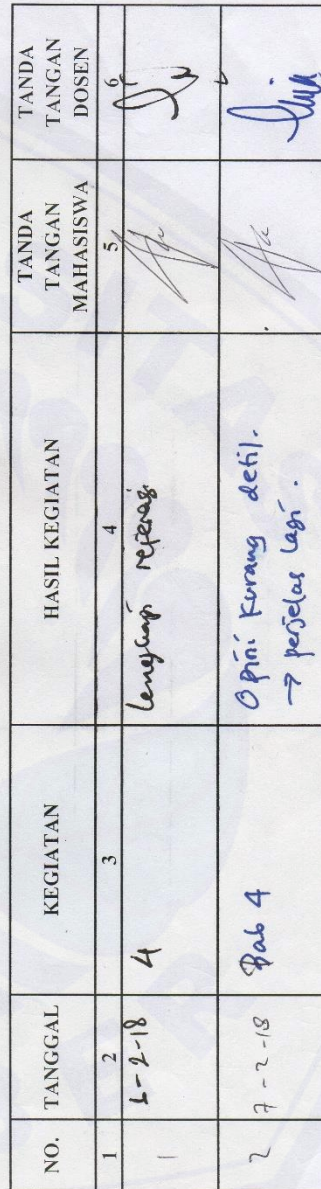 NO. TANGGAL KEGIATAN HASIL KEGIATAN TANDA TANGAN MAHASISWA TANDA TANGAN DOSEN
1 2 3 4 5 6
1 6-2-18 4 lengkapi referensi
2 7-2-18 Bab 4 Opini kurang detil.
→ perjelas lagi.